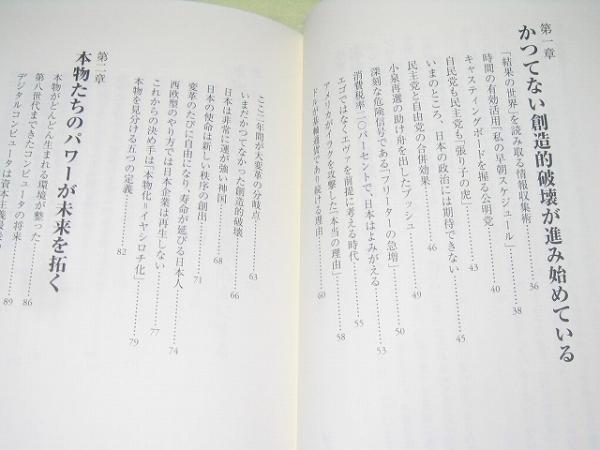 第一章
かつてない創造的破壊が進み始めている
「結果の世界」を読み取る情報収集術………36
時間の有効活用「私の早朝スケジュール」………38
キャスティングボードを握る公明党………40
自民党も民主党も「張り子の虎」………43
いまのところ、日本の政治には期待できない………45
民主党と自由党の合併効果………46
小泉再選の助け舟を出したブッシュ………49
深刻な危険信号である「フリーターの急増」………50
消費税率一〇パーセントで、日本はよみがえる………53
エゴではなくエヴァを前提に考える時代………55
アメリカがイラクを攻撃した「本当の理由」………58
ドルが基軸通貨であり続ける理由………60
ここ二年間が大変革の分岐点………63
いまだかつてなかった創造的破壊………66
日本は非常に運が強い神国………68
日本の使命は新しい秩序の創出………71
変革のたびに自由になり、寿命が延びる日本人………74
西欧型のやり方では日本企業は再生しない………77
これからの決め手は「本物化＝イヤシロチ化」………79
本物を見分ける五つの定義………82
第二章
本物たちのパワーが未来を拓く
本物がどんどん生まれる環境が整った………86
第八世代まできたコンピュータの将来………89
デジタルコンピュータは資本主義